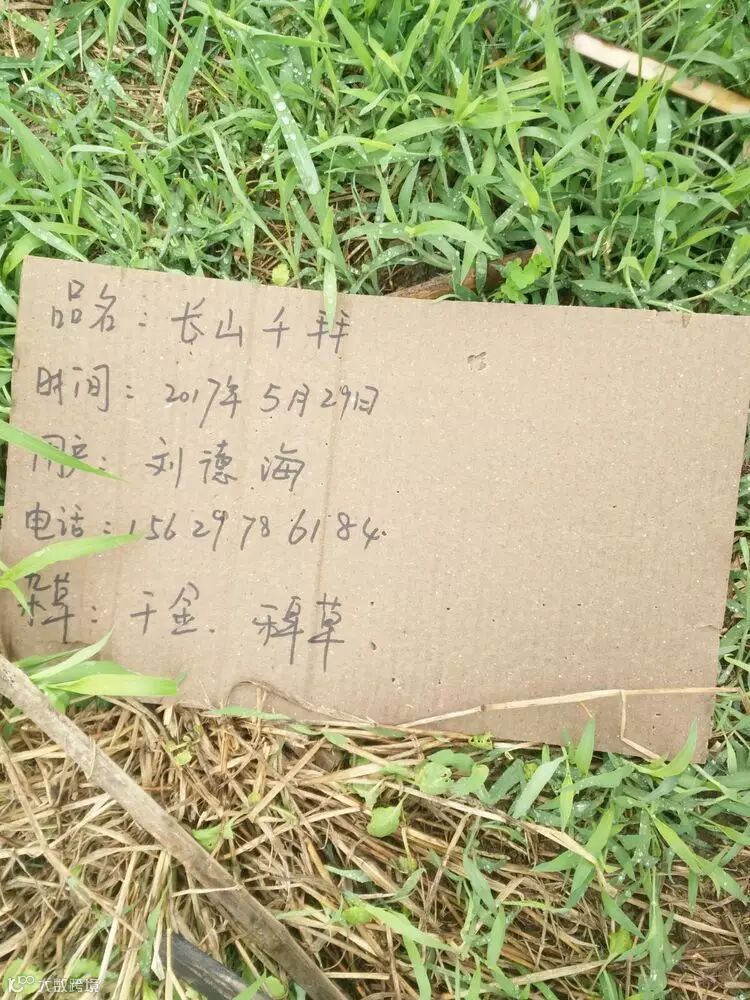 品名：长山千拜
时间：2017年5月29日
用户：刘德海
电话：15629786184
杂草：千金、稗草
大数跨境